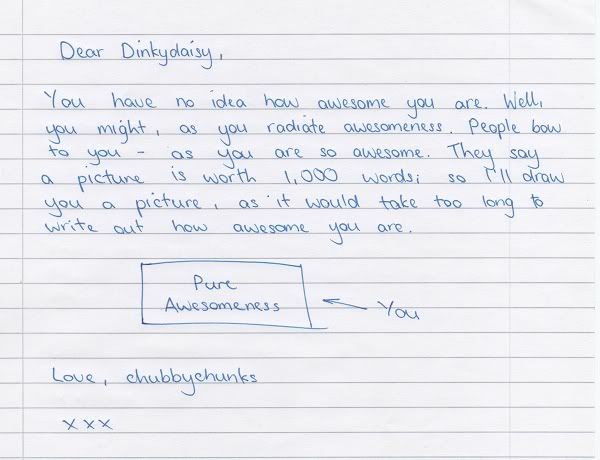 Dear Dinkydaisy,
You have no idea how awesome you are. Well,
you might, as you radiate awesomeness. People bow
to you - as you are so awesome. They say
a picture is worth 1,000 words; so I'll draw
you a picture, as it would take too long to
write out how awesome you are.
Pure
Awesomeness
You
Love, chubbychunks
x x x